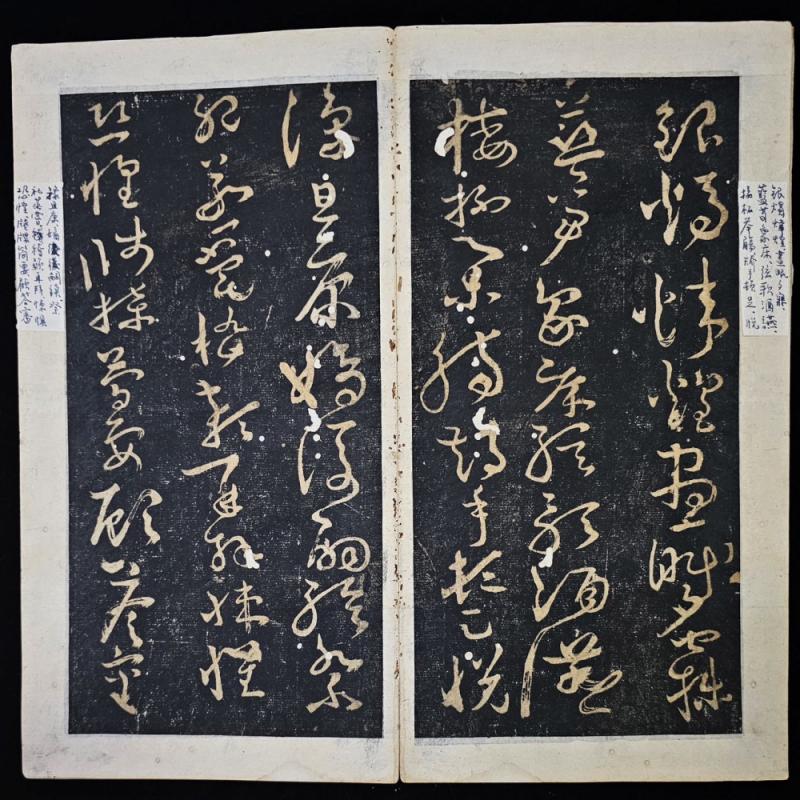 銀燭煒煌晝眠夕寐、
藍笋象床、弦歌酒讌、
接杯舉觴矯手頓足、悅
銀燭煒煌晝眠夕寐
藍笋象床絃歌酒讌
接杯舉觴矯手頓足悅
豫且康嫡後嗣續祭
祀蒸嘗稽顙再拜悚懼
恐惶牋牒簡要顧答審
豫且康嫡後嗣續祭
祀蒸嘗稽顙再拜悚懼
恐惶牋牒簡要顧答審